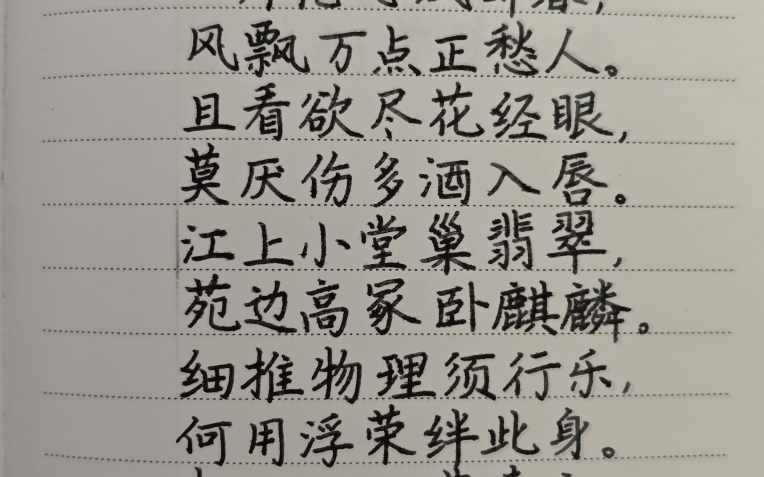 风飘万点正愁人。
且看欲尽花经眼,
莫厌伤多酒入唇。
江上小堂巢翡翠,
苑边高冢卧麒麟。
细推物理须行乐,
何用浮荣绊此身。